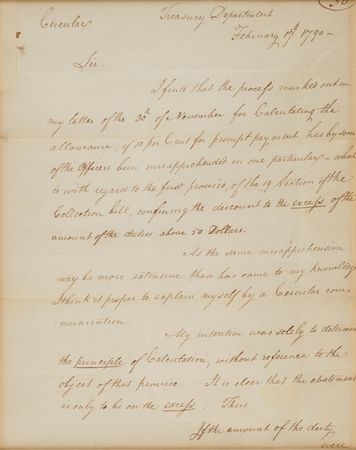 Circular
Treasury Department
February 17th 1790 -
Sir.
I find that the process marked out in
my letter of the 30th of November for Calculating the
allowance, of 10 per Cent for prompt payment has by some
of the Officers been misapprehended in one particular - which
is with regard to the first proviso, of the 19 Section of the
Collection bill, confining the discount to the excess of the
amount of the duties above 50 Dollars.
As the same misapprehension
may be more extensive than has come to my knowledge
I think it proper to explain myself by a Circular com-
munication.
My intention was solely to determine
the principle of Calculation, without reference to the
object of that proviso. It is clear that the abatement
is only to be on the excess: Thus
If the amount of the duty
were